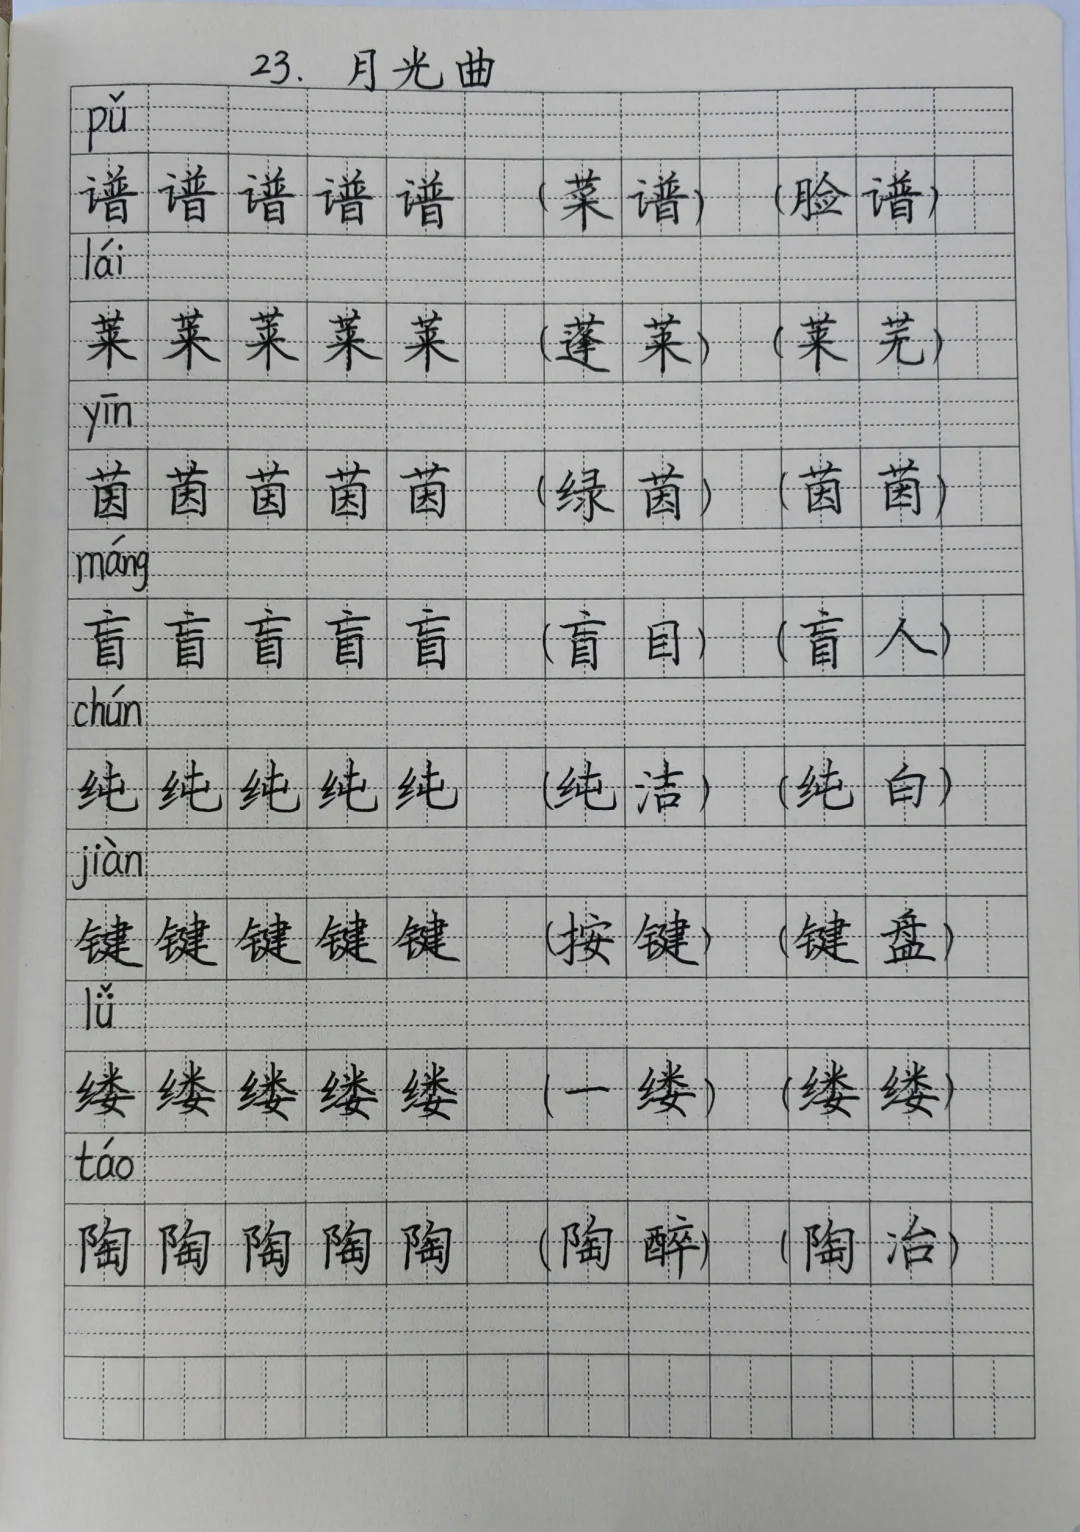 23. 月光曲
pǔ
谱 谱 谱 谱 谱 (菜 谱) (脸 谱)
lái
莱 莱 莱 莱 莱 (蓬 莱) (莱 芜)
yīn
茵 茵 茵 茵 茵 (绿 茵) (茵 茵)
máng
盲 盲 盲 盲 盲 (盲 目) (盲 人)
chún
纯 纯 纯 纯 纯 (纯 洁) (纯 白)
jiàn
键 键 键 键 键 (按 键) (键 盘)
lǚ
缕 缕 缕 缕 缕 (一 缕) (缕 缕)
táo
陶 陶 陶 陶 陶 (陶 醉) (陶 冶)